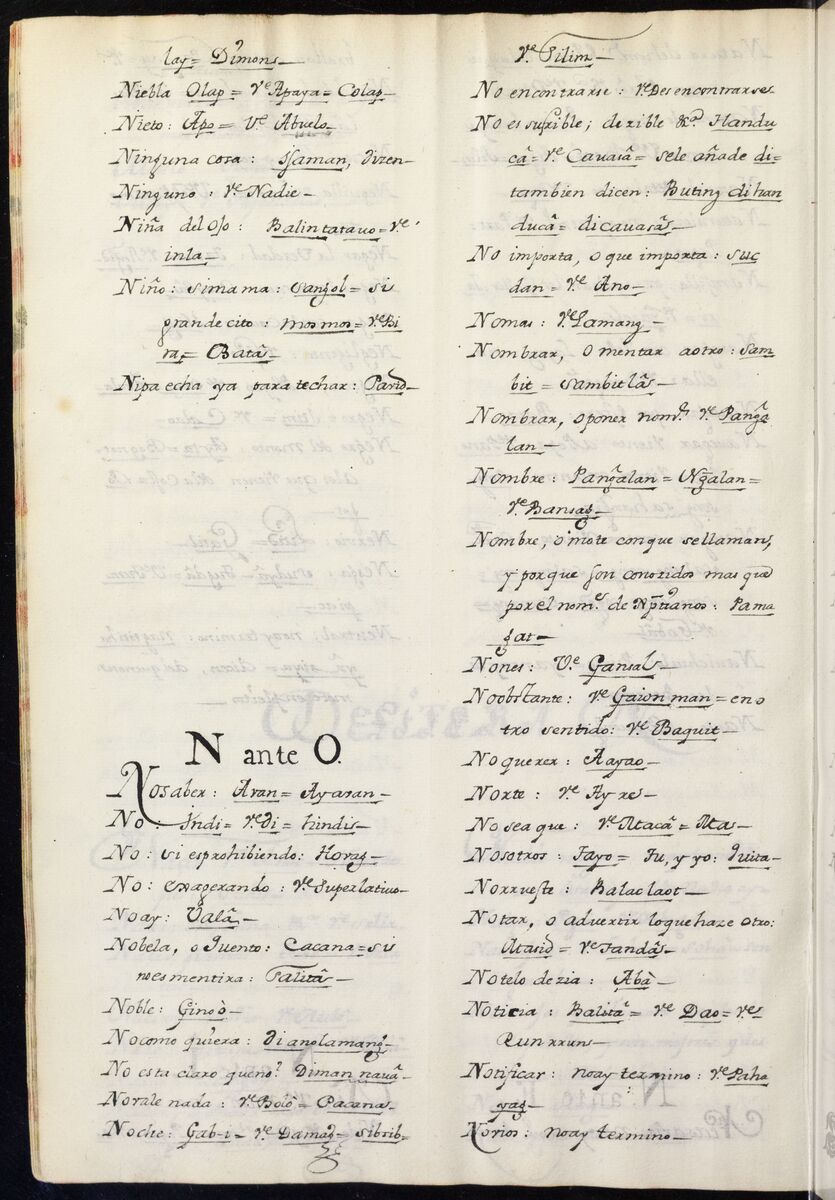 lay = Dimons —
Niebla Olap = Ve Apaya = Colap —
Nieto: Apo = Ve Abuelo —
Ninguna cosa: dizen —
Ninguno: Ve Nadie —
Niña del Ojo: Balintatauo = Ve
inla —
Niño: simama: sangol = si
grandecito: mosmos = Ve Bi
ra, = Batâ —
Nipa echa ya para techar: Pavid —
N ante O.
No saber: Aran = Ayaran —
No: Indi = Ve di = hindis —
No: si es prohibiendo: Horag —
No: exagerando: Ve Superlatiuo —
No ay: Ualâ —
Nobela, o Quento: Cacana = si
no es mentira: Talitâ —
Noble: Ginoò —
No como quiera: di anolamang —
No esta claro que no? Diman nauâ —
No vale nada: Ve Bolò = Pacana —
Noche: Gab-i = Ve Damag = sibsib =
Ve Silim —
No encontrarse: Ve Desencontrarse
No es sufrible; dezible &a. Handu
câ = Ve Cauasâ = se le añade di =
tambien dicen: Buting di han
ducâ = dicauasâ —
No importa, o que importa: suc
dan = Ve Ano —
No mas: Ve Lamang —
Nombrar, o mentar a otro: sam
bit = sambitlâ —
Nombrar, o poner nome. Ve Panga
lan —
Nombre: Pangalan = Ngalan =
Ve Bansag —
Nombre, o mote con que se llaman,
y por que son conozidos mas que
por el nome. de Xptianos: Pama
gat —
Nones: Ve Gansal —
No obstante: Ve Gaion man = en o
tro sentido: Ve Baquit —
No querer: Aayao —
Norte: Ve Ayre —
No sea que: Ve Atacâ = Ata —
Nosotros: Tayo = Tu, y yo: Quita —
Norrueste: Balaclaot —
Notar, o advertir lo que haze otro:
Atasid = Ve Tandâ —
No te lo dezia: Abà —
Noticia: Balitâ = Ve Dao = Ve
Runrrun —
Notificar: no ay termino: Ve Paha
yag —
Novios: no ay termino —